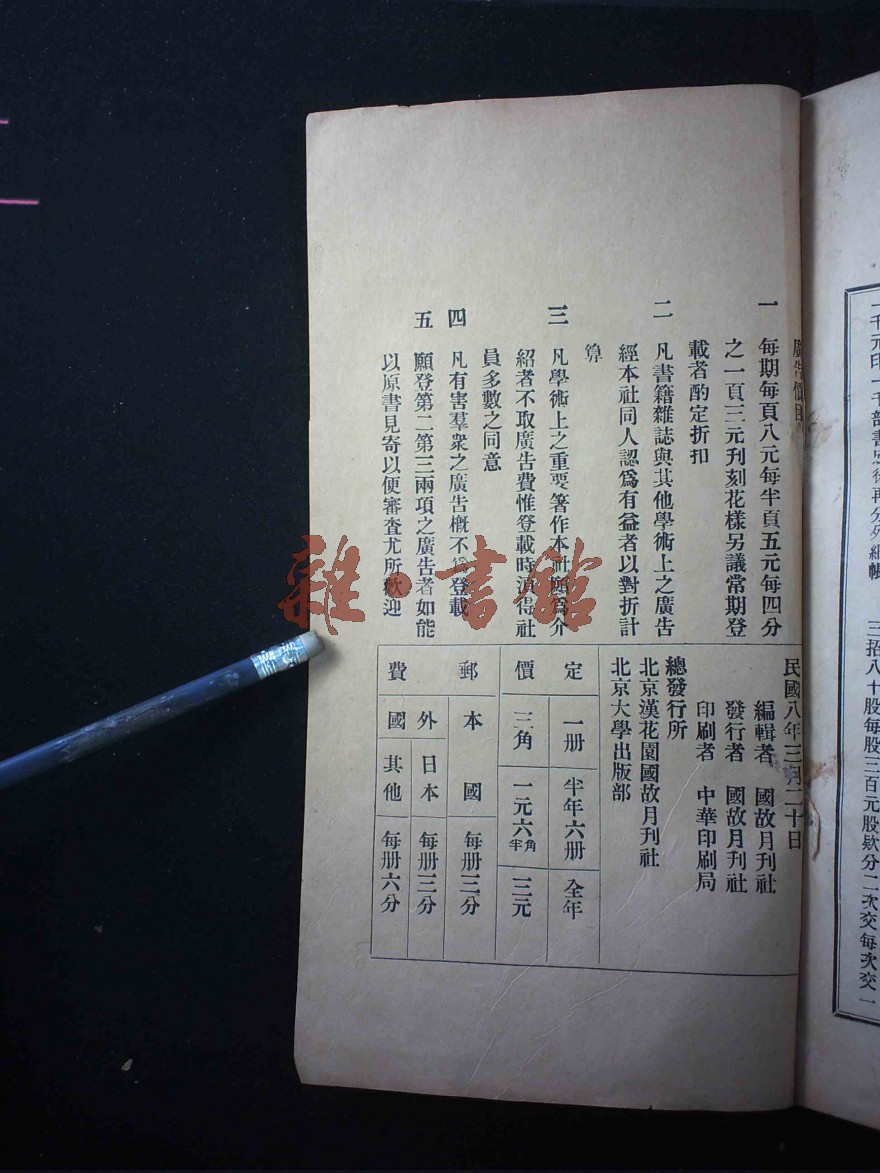 一千元印一千部書
三招八十股每股三百元股欵分二次交每次交一
廣告價目
一 每期每頁八元每半頁五元每四分
之一頁三元刊刻花樣另議常期登
載者酌定折扣
二 凡書籍雜誌與其他學術上之廣告
經本社同人認爲有益者以對折計
算
三 凡學術上之重要箸作本社願爲介
紹者不取廣告費惟登載時須得社
員多數之同意
四 凡有害羣衆之廣告槪不爲登載
五 願登第二第三兩項之廣告者如能
以原書見寄以便審査尤所歡迎
民國八年三月二十日
編輯者 國故月刊社
發行者 國故月刊社
印刷者 中華印刷局
總發行所
北京漢花園國故月刊社
北京大學出版部
定 一册 半年六册 全年
價 三角 一元六角半 三元
郵 本國 每册二分
費 外國 日本 每册二分
其他 每册六分
雜·書館